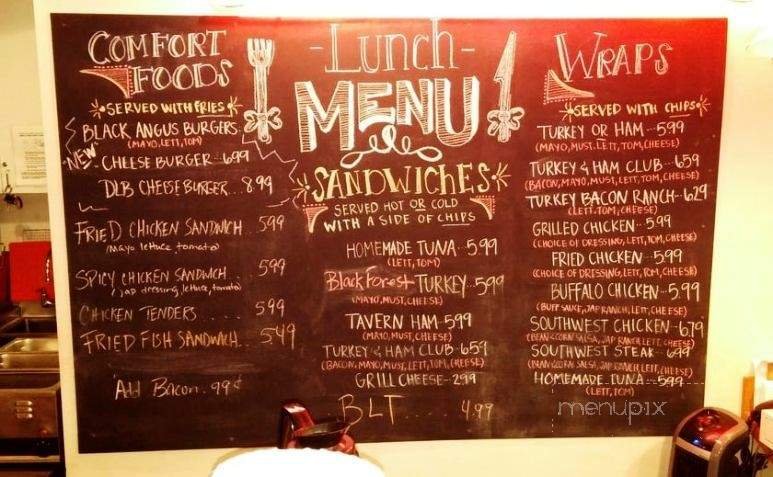 COMFORT
FOODS
SERVED WITH FRIES
BLACK ANGUS BURGERS
(MAYO, LETT, TOM)
NEW
CHEESE BURGER - 6.99
DLB CHEESE BURGER... 8.99
FRIED CHICKEN SANDWICH... 5.99
(mayo lettuce, tomato)
SPICY CHICKEN SANDWICH... 5.99
(jap dressing, lettuce, tomato)
CHICKEN TENDERS..... 5.99
FRIED FISH SANDWICH... 5.49
Add Bacon... 99¢
-Lunch-
MENU
SANDWICHES
SERVED HOT OR COLD
WITH A SIDE OF CHIPS
HOMEMADE TUNA - 5.99
(LETT, TOM)
Black Forest TURKEY - 5.99
(MAYO, MUST, CHEESE)
TAVERN HAM - 5.99
(MAYO, MUST, CHEESE)
TURKEY & HAM CLUB - 6.59
(BACON, MAYO, MUST, LETT, TOM, CHEESE)
GRILL CHEESE - 2.99
BLT..... 4.99
WRAPS
SERVED WITH CHIPS
TURKEY OR HAM -- 5.99
(MAYO, MUST, LETT, TOM, CHEESE)
TURKEY & HAM CLUB - 6.59
(BACON, MAYO, MUST, LETT, TOM, CHEESE)
TURKEY BACON RANCH - 6.29
(LETT, TOM, CHEESE)
GRILLED CHICKEN - 5.99
(CHOICE OF DRESSING, LETT, TOM, CHEESE)
FRIED CHICKEN - 5.99
(CHOICE OF DRESSING, LETT, TOM, CHEESE)
BUFFALO CHICKEN - 5.99
(BUFF SAUCE, JAP RANCH, LETT, CHEESE)
SOUTHWEST CHICKEN - 6.79
(BEAN & CORN SALSA, JAP RANCH, LETT, CHEESE)
SOUTHWEST STEAK - 6.99
(BEAN & CORN SALSA, JAP RANCH, LETT, CHEESE)
HOMEMADE TUNA - 5.99
(LETT, TOM)
menupix